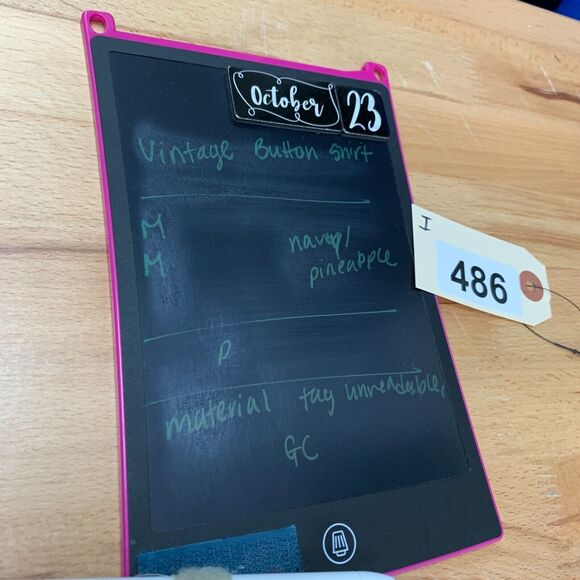 October 23
Vintage Button Shirt
M
navy/
M
pineapple
P
material tag unreadable,
GC
I
486